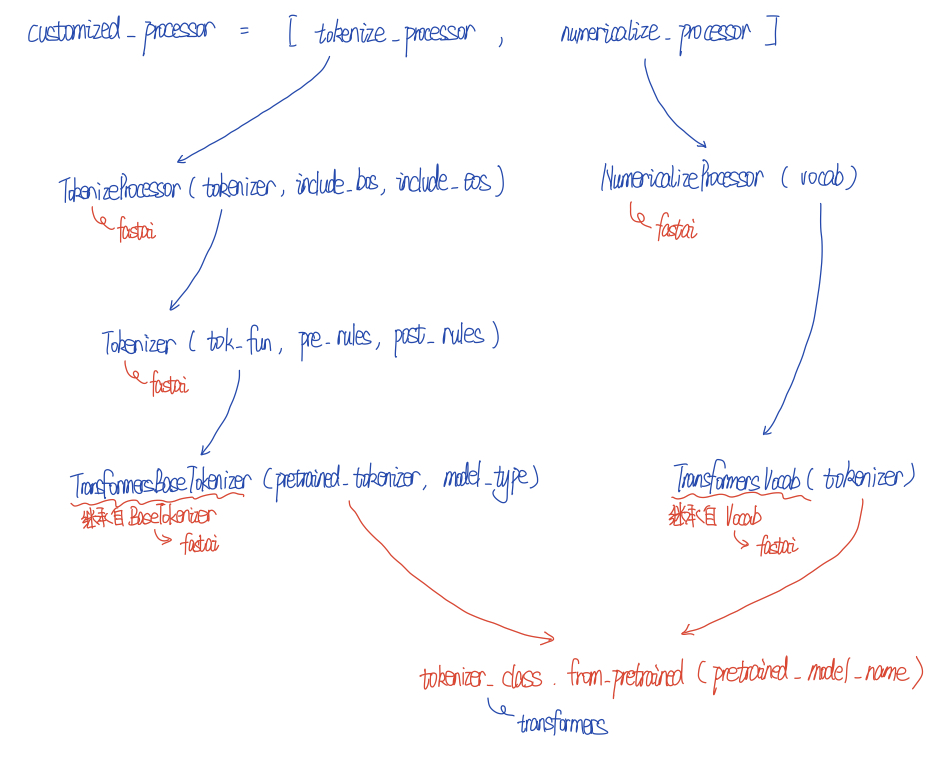 customized_processor = [ tokenize_processor , numericalize_processor ]
TokenizeProcessor ( tokenizer, include_bos, include_eos )
NumericalizeProcessor ( vocab )
fastai
fastai
Tokenizer ( tok_fun, pre_rules, post_rules )
fastai
TransformersBaseTokenizer ( pretrained_tokenizer, model_type )
TransformersVocab ( tokenizer )
继承自 BaseTokenizer
继承自 Vocab
fastai
fastai
tokenizer_class . from_pretrained ( pretrained_model_name )
transformers